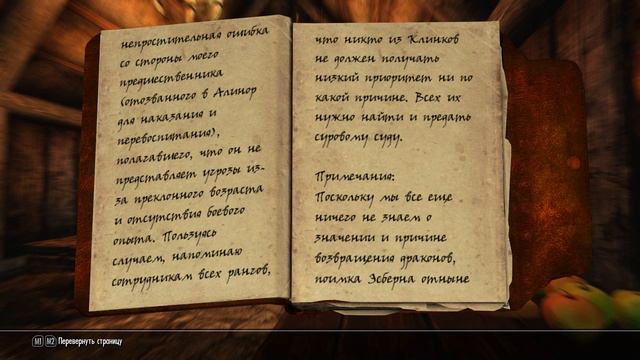 непростительная ошибка
со стороны моего
предшественника
(отозванного в Алинор
для наказания и
перевоспитания),
полагавшего, что он не
представляет угрозы из-
за преклонного возраста
и отсутствия боевого
опыта. Пользуясь
случаем, напоминаю
сотрудникам всех рангов,
что никто из Клинков
не должен получать
низкий приоритет ни по
какой причине. Всех их
нужно найти и предать
суровому суду.
Примечания:
Поскольку мы все еще
ничего не знаем о
значении и причине
возвращения драконов,
поимка Эсберна отныне
M1 M2 Перевернуть страницу